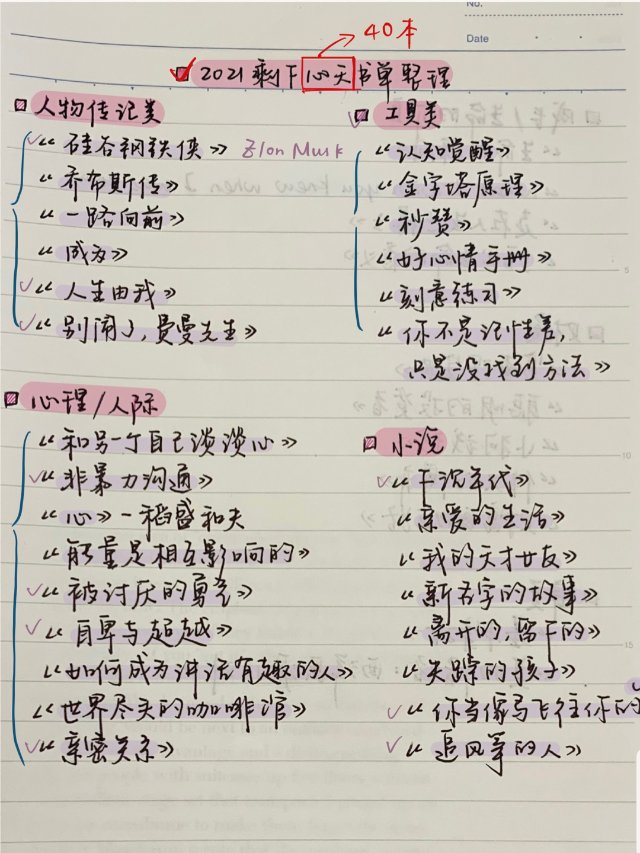 No.
Date
40本
2021剩下心天书单整理
人物传记类
《硅谷钢铁侠》 Elon Musk
《乔布斯传》
《一路向前》
《成为》
《人生由我》
《别闹了,费曼先生》
心理/人际
《和另一个自己谈谈心》
《非暴力沟通》
《心》—稻盛和夫
《能量是相互影响的》
《被讨厌的勇气》
《自卑与超越》
《如何成为讲话有趣的人》
《世界尽头的咖啡馆》
《亲密关系》
工具类
《认知觉醒》
《金字塔原理》
《秒赞》
《好心情手册》
《刻意练习》
《你不是记性差,
只是没找到方法》
小说
《下沉年代》
《亲爱的生活》
《我的天才女友》
《新名字的故事》
《离开的,留下的》
《失踪的孩子》
《你当像鸟飞往你的
《追风筝的人》